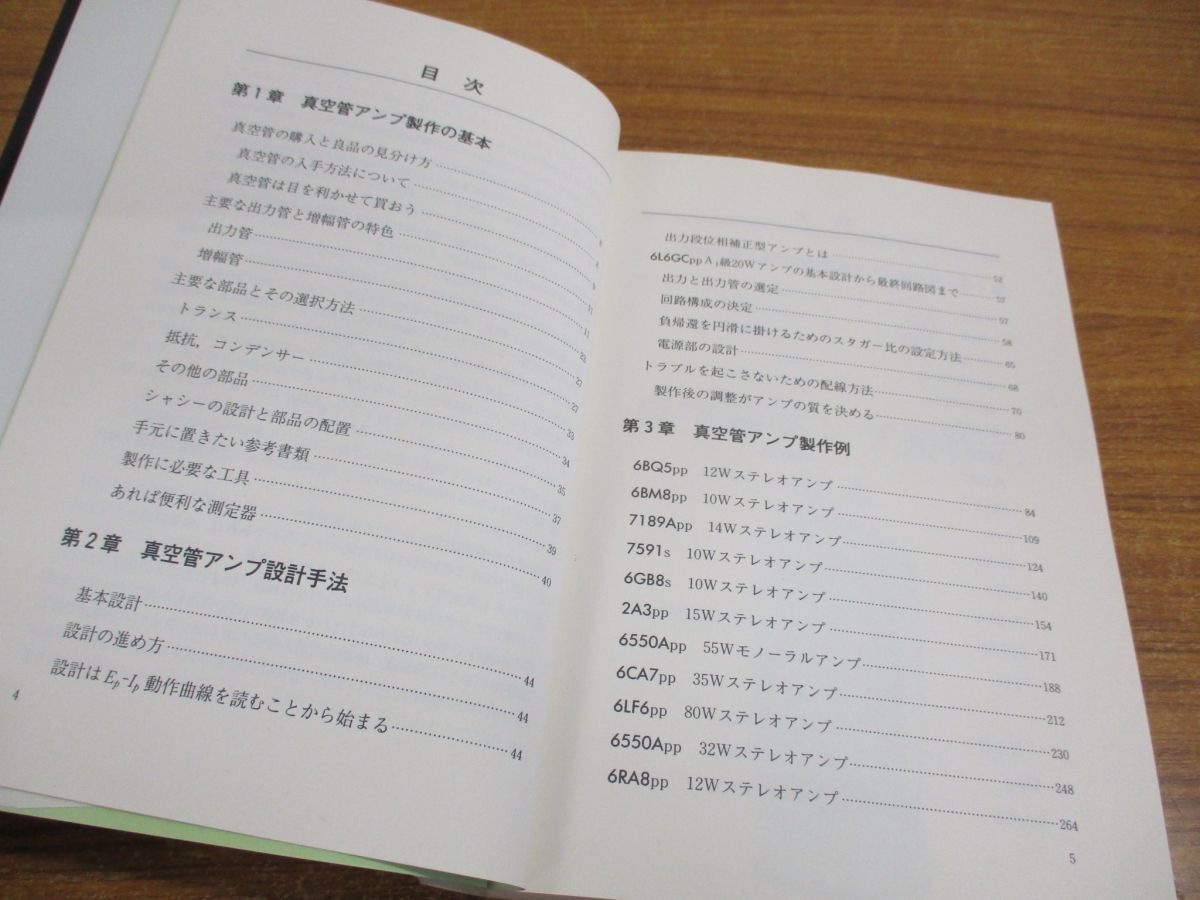 目 次
第1章 真空管アンプ製作の基本
真空管の購入と良品の見分け方
真空管の入手方法について
真空管は目を利かせて買おう
主要な出力管と増幅管の特色
出力管
増幅管
主要な部品とその選択方法
トランス
抵抗，コンデンサー
その他の部品
シャシーの設計と部品の配置 34
手元に置きたい参考書類 35
製作に必要な工具 37
あれば便利な測定器 39
40
第2章 真空管アンプ設計手法
基本設計 44
設計の進め方 44
設計はEp-Ip動作曲線を読むことから始まる 44
4
出力段位相補正型アンプとは 52
6L6GCpp A₁級20Wアンプの基本設計から最終回路図まで 57
出力と出力管の選定 57
回路構成の決定 58
負帰還を円滑に掛けるためのスタガー比の設定方法 65
電源部の設計 68
トラブルを起こさないための配線方法 70
製作後の調整がアンプの質を決める 80
第3章 真空管アンプ製作例
6BQ5pp 12Wステレオアンプ 84
6BM8pp 10Wステレオアンプ 109
7189App 14Wステレオアンプ 124
7591s 10Wステレオアンプ 140
6GB8s 10Wステレオアンプ 154
2A3pp 15Wステレオアンプ 171
6550App 55Wモノーラルアンプ 188
6CA7pp 35Wステレオアンプ 212
6LF6pp 80Wステレオアンプ 230
6550App 32Wステレオアンプ 248
6RA8pp 12Wステレオアンプ 264
5